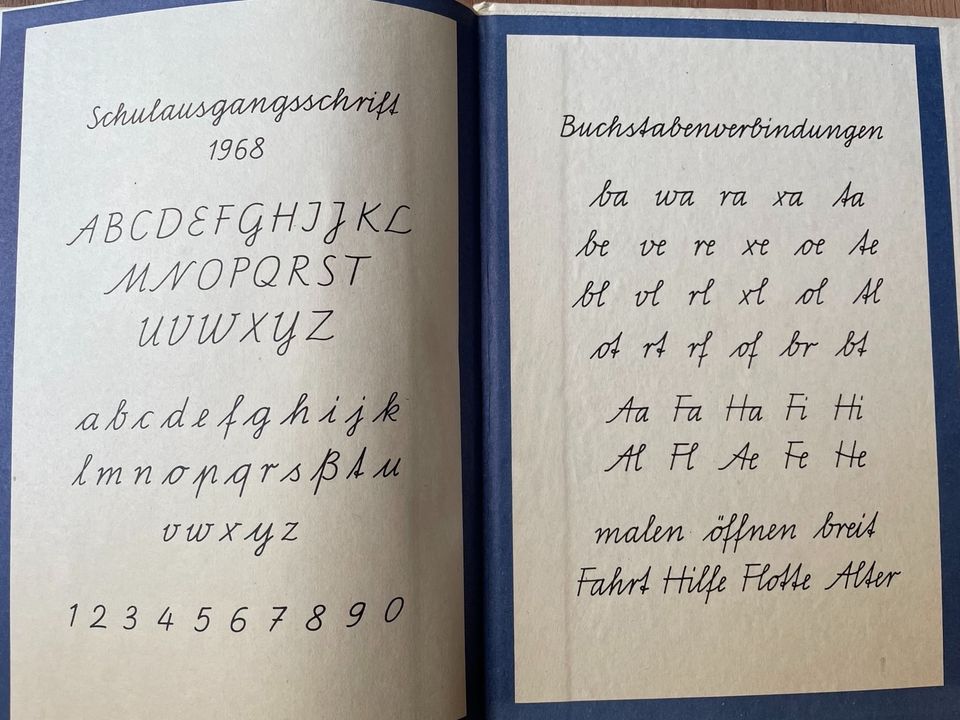 Schulausgangsschrift
1968
A B C D E F G H I J K L
M N O P Q R S T
U V W X Y Z
a b c d e f g h i j k
l m n o p q r s ß t u
v w x y z
1 2 3 4 5 6 7 8 9 0
Buchstabenverbindungen
ba wa ra xa ta
be ve re xe oe te
bl vl rl xl ol tl
ot rt rf of br bt
Aa Fa Ha Fi Hi
Al Fl Ae Fe He
malen öffnen breit
Fahrt Hilfe Flotte Alter